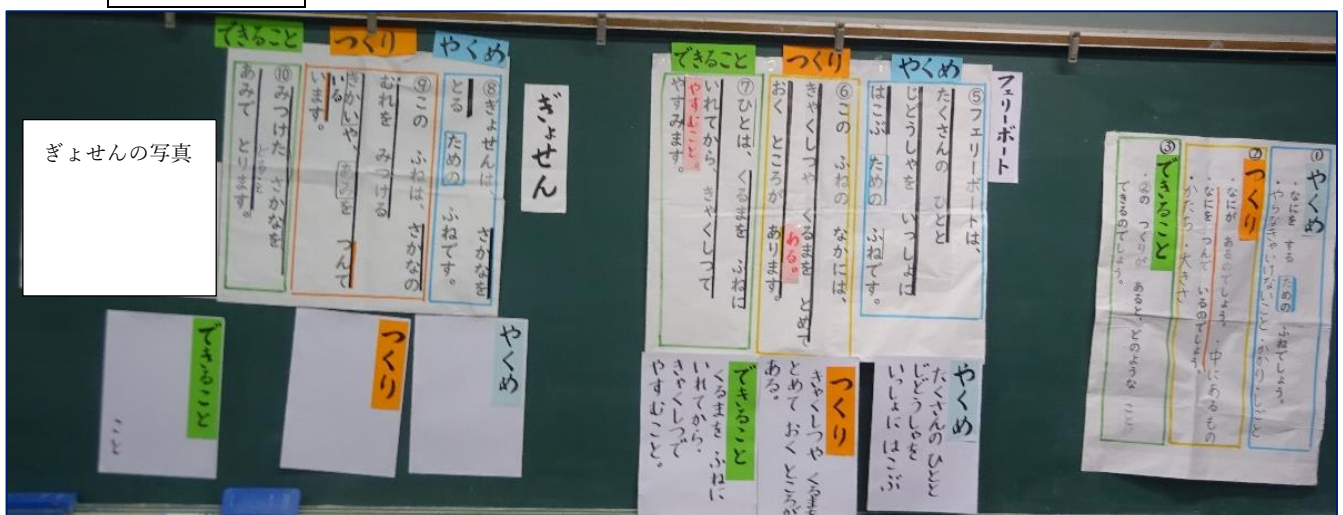 ①やくめ
・なにを する ための ふねでしょう。
・やらなきゃいけないこと・かかり・しごと
②つくり
・なにが あるのでしょう。・中にあるもの
・なにを つんで いるのでしょう。
・かたち・大きさ
③できること
・②の つくりが あると、どのような こと
できるのでしょう。
フェリーボート
やくめ
⑤フェリーボートは、
たくさんの ひとと
じどうしゃを いっしょに
はこぶ ための ふねです。
つくり
⑥この ふねの なかには、
きゃくしつや くるまを とめて
おく ところが あります。
ある。
できること
⑦ひとは、くるまを ふねに
いれてから、きゃくしつで
やすむこと。
やすみます。
やくめ
たくさんの ひとと
じどうしゃを
いっしょに はこぶ
つくり
きゃくしつや くるまを
とめて おく ところが
ある。
できること
くるまを ふねに
いれてから
きゃくしつで
やすむこと。
ぎょせん
やくめ
⑧ぎょせんは、さかなを
とる ための ふねです。
つくり
⑨この ふねは、さかなの
むれを みつける
きかいや、あみを つんで
いる
います。
できること
⑩みつけた さかなを
あみで とります。
とること
やくめ
つくり
できること
こと
ぎょせんの写真